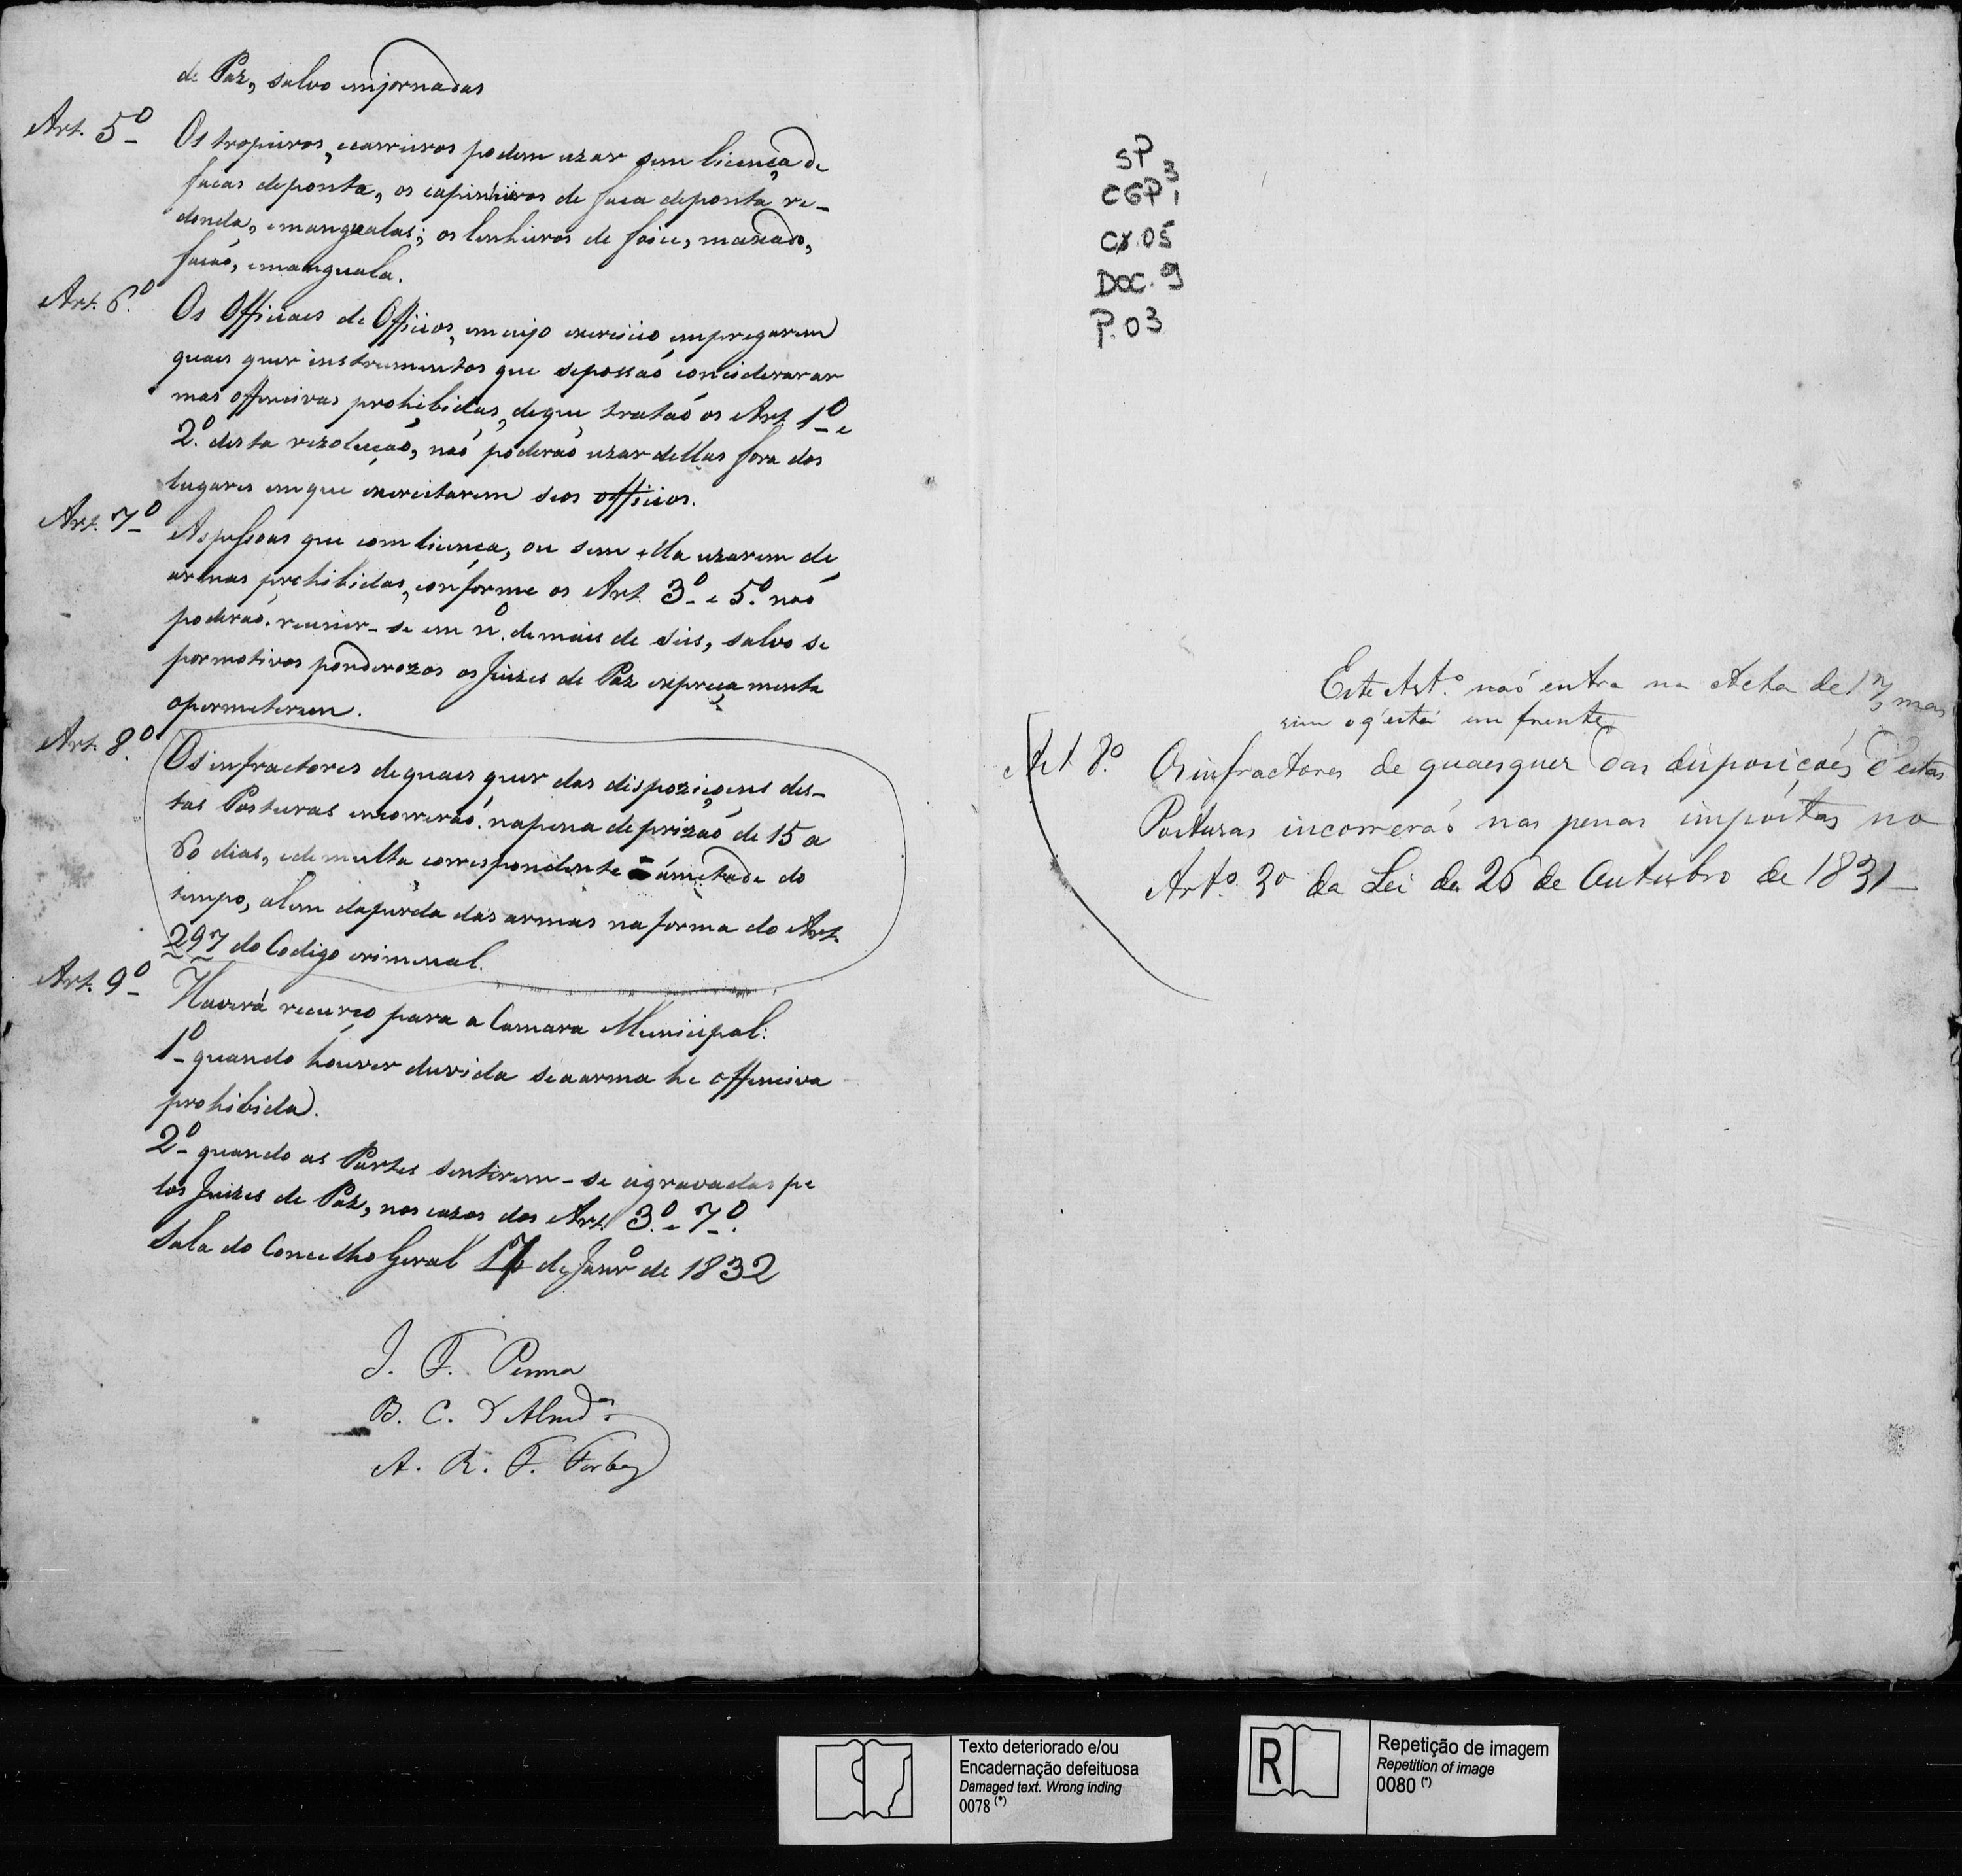 de Paz, salvo emjornadas
Art. 5º Os tropeiros, ecarreiros podem uzar sem licença de
facas deponta, os capinheiros de faca deponta re-
donda, emangualas; os lenheiros de foice, maxado,
facaó, emanguala.
Art. 6.º Os Officiaes de Officios, emcujo exercicio empregarem
quaes quer instrumentos que sepossaó conciderar ar
mas offencivas prohibidas, deque trataó os Art. 1º e
2.º desta rezoluçaó, naó poderaó uzar dellas fora dos
lugares emque exercitarem seos officios.
Art. 7º As pessoas que com licença, ou sem ella uzarem de
armas prohibidas, conforme os Art. 3º e 5.º naó
poderaó reunir-se em nº. demais de seis, salvo se
pormotivos ponderozos os Juizes de Paz expreça mente
opermeterem.
Art. 8.º Os infractores dequaes quer das dispoziçoens des-
tas Posturas encorreraó napena deprizaó de 15 a
60 dias, edemulta correspondente ámetade do
tempo, alem daperda das armas na forma do Art.
297 do Codigo criminal.
Art. 9º Haverá recurço para a Camara Municipal:
1º quando houver duvida seaarma he offenciva
prohibida.
2º quando as Partes sentirem-se agravadas pe
los Juizes de Paz, nos cazos dos Art. 3.º e 7º.
Sala do Concelho Geral 17 de Janrº de 1832
J. F. Penna
B. C. d'Almdª.
A. R. F.
SP
CGP3
1
CX.05
DOC. 9
P.03
Este Art.º naó entra na Acta de 17, mas
sim o q' está em frente
Art 8º. Os infractores de quaesquer das disposiçoés d'estas
Posturas incorreraó nas penas impóstas no
Artº. 3º da Lei de 26 de Outubro de 1831
Texto deteriorado e/ou
Encadernação defeituosa
Damaged text. Wrong inding
0078 (*)
R
Repetição de imagem
Repetition of image
0080 (*)